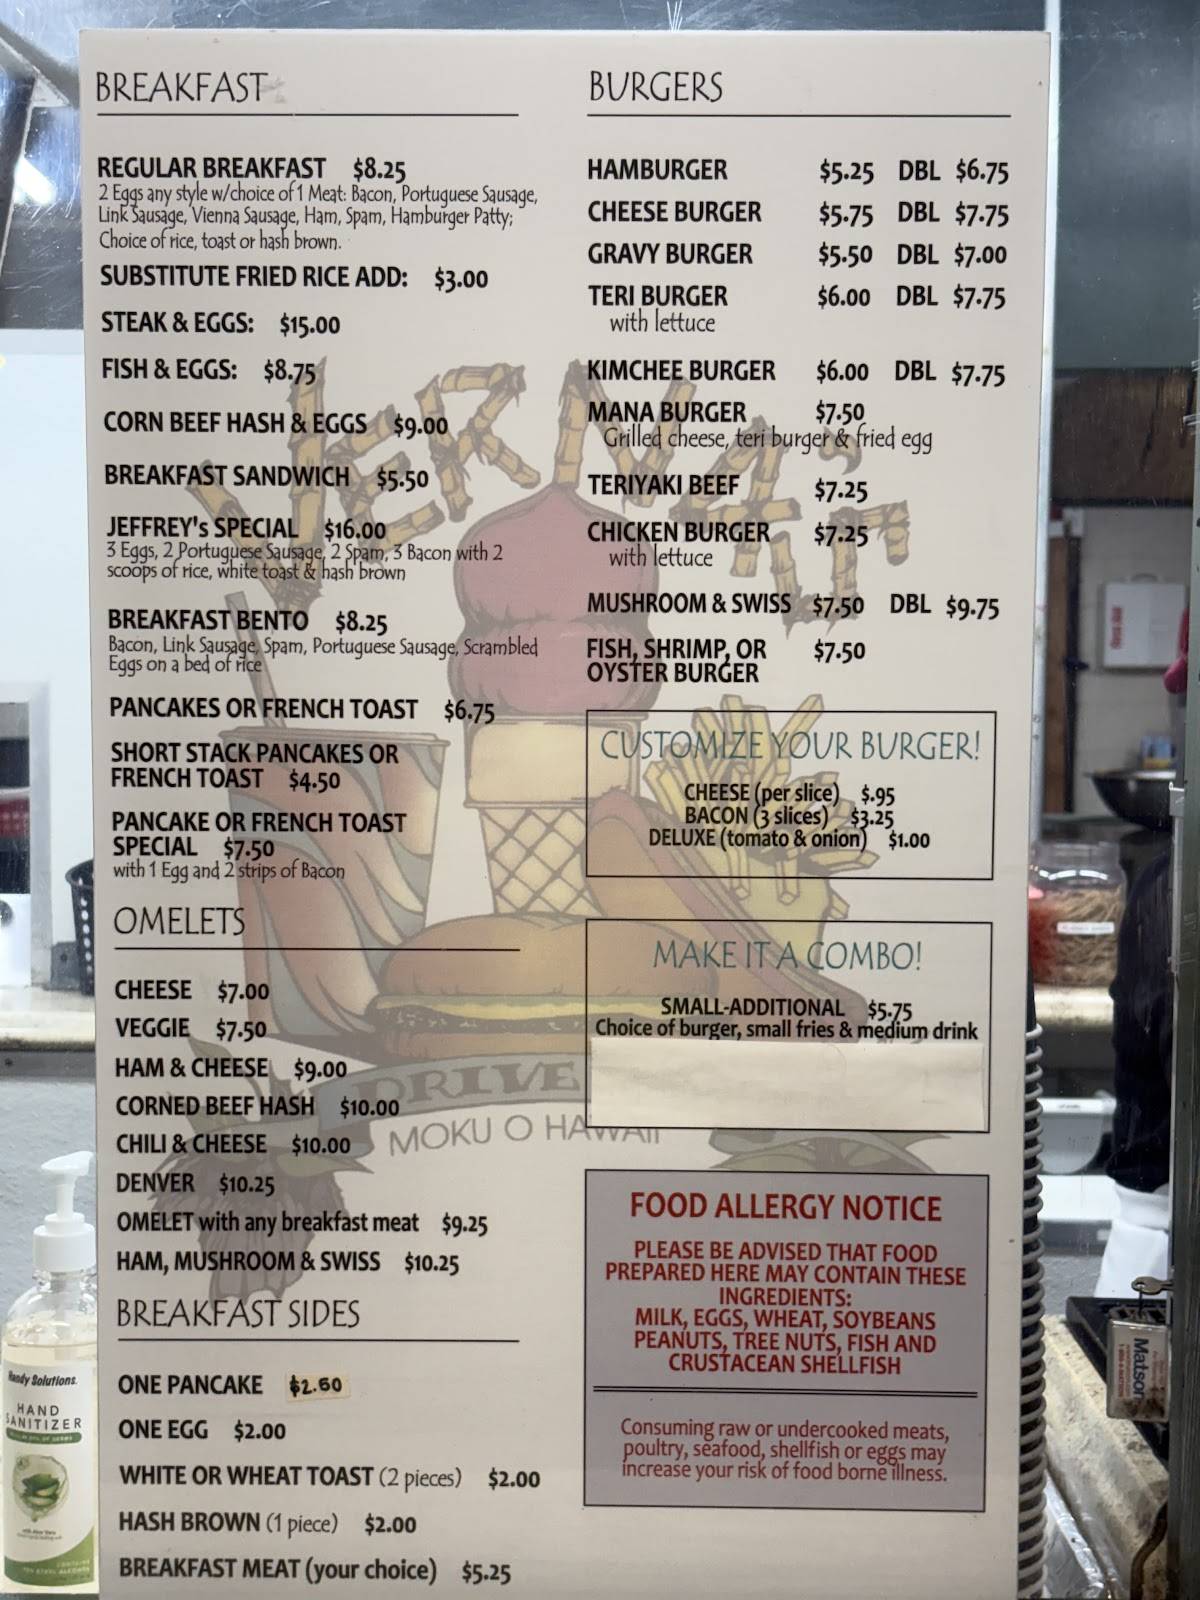 BREAKFAST
REGULAR BREAKFAST $8.25
2 Eggs any style w/choice of 1 Meat: Bacon, Portuguese Sausage,
Link Sausage, Vienna Sausage, Ham, Spam, Hamburger Patty;
Choice of rice, toast or hash brown.
SUBSTITUTE FRIED RICE ADD: $3.00
STEAK & EGGS: $15.00
FISH & EGGS: $8.75
CORN BEEF HASH & EGGS $9.00
BREAKFAST SANDWICH $5.50
JEFFREY's SPECIAL $16.00
3 Eggs, 2 Portuguese Sausage, 2 Spam, 3 Bacon with 2
scoops of rice, white toast & hash brown
BREAKFAST BENTO $8.25
Bacon, Link Sausage, Spam, Portuguese Sausage, Scrambled
Eggs on a bed of rice
PANCAKES OR FRENCH TOAST $6.75
SHORT STACK PANCAKES OR
FRENCH TOAST $4.50
PANCAKE OR FRENCH TOAST
SPECIAL $7.50
with 1 Egg and 2 strips of Bacon
OMELETS
CHEESE $7.00
VEGGIE $7.50
HAM & CHEESE $9.00
CORNED BEEF HASH $10.00
CHILI & CHEESE $10.00
DENVER $10.25
OMELET with any breakfast meat $9.25
HAM, MUSHROOM & SWISS $10.25
BREAKFAST SIDES
ONE PANCAKE $2.60
ONE EGG $2.00
WHITE OR WHEAT TOAST (2 pieces) $2.00
HASH BROWN (1 piece) $2.00
BREAKFAST MEAT (your choice) $5.25
BURGERS
HAMBURGER $5.25 DBL $6.75
CHEESE BURGER $5.75 DBL $7.75
GRAVY BURGER $5.50 DBL $7.00
TERI BURGER $6.00 DBL $7.75
with lettuce
KIMCHEE BURGER $6.00 DBL $7.75
MANA BURGER $7.50
Grilled cheese, teri burger & fried egg
TERIYAKI BEEF $7.25
CHICKEN BURGER $7.25
with lettuce
MUSHROOM & SWISS $7.50 DBL $9.75
FISH, SHRIMP, OR $7.50
OYSTER BURGER
CUSTOMIZE YOUR BURGER!
CHEESE (per slice) $.95
BACON (3 slices) $3.25
DELUXE (tomato & onion) $1.00
MAKE IT A COMBO!
SMALL-ADDITIONAL $5.75
Choice of burger, small fries & medium drink
FOOD ALLERGY NOTICE
PLEASE BE ADVISED THAT FOOD
PREPARED HERE MAY CONTAIN THESE
INGREDIENTS:
MILK, EGGS, WHEAT, SOYBEANS
PEANUTS, TREE NUTS, FISH AND
CRUSTACEAN SHELLFISH
Consuming raw or undercooked meats,
poultry, seafood, shellfish or eggs may
increase your risk of food borne illness.
VERNA'S
DRIVE
MOKU O HAWAII
Handy Solutions
HAND
SANITIZER
Matson